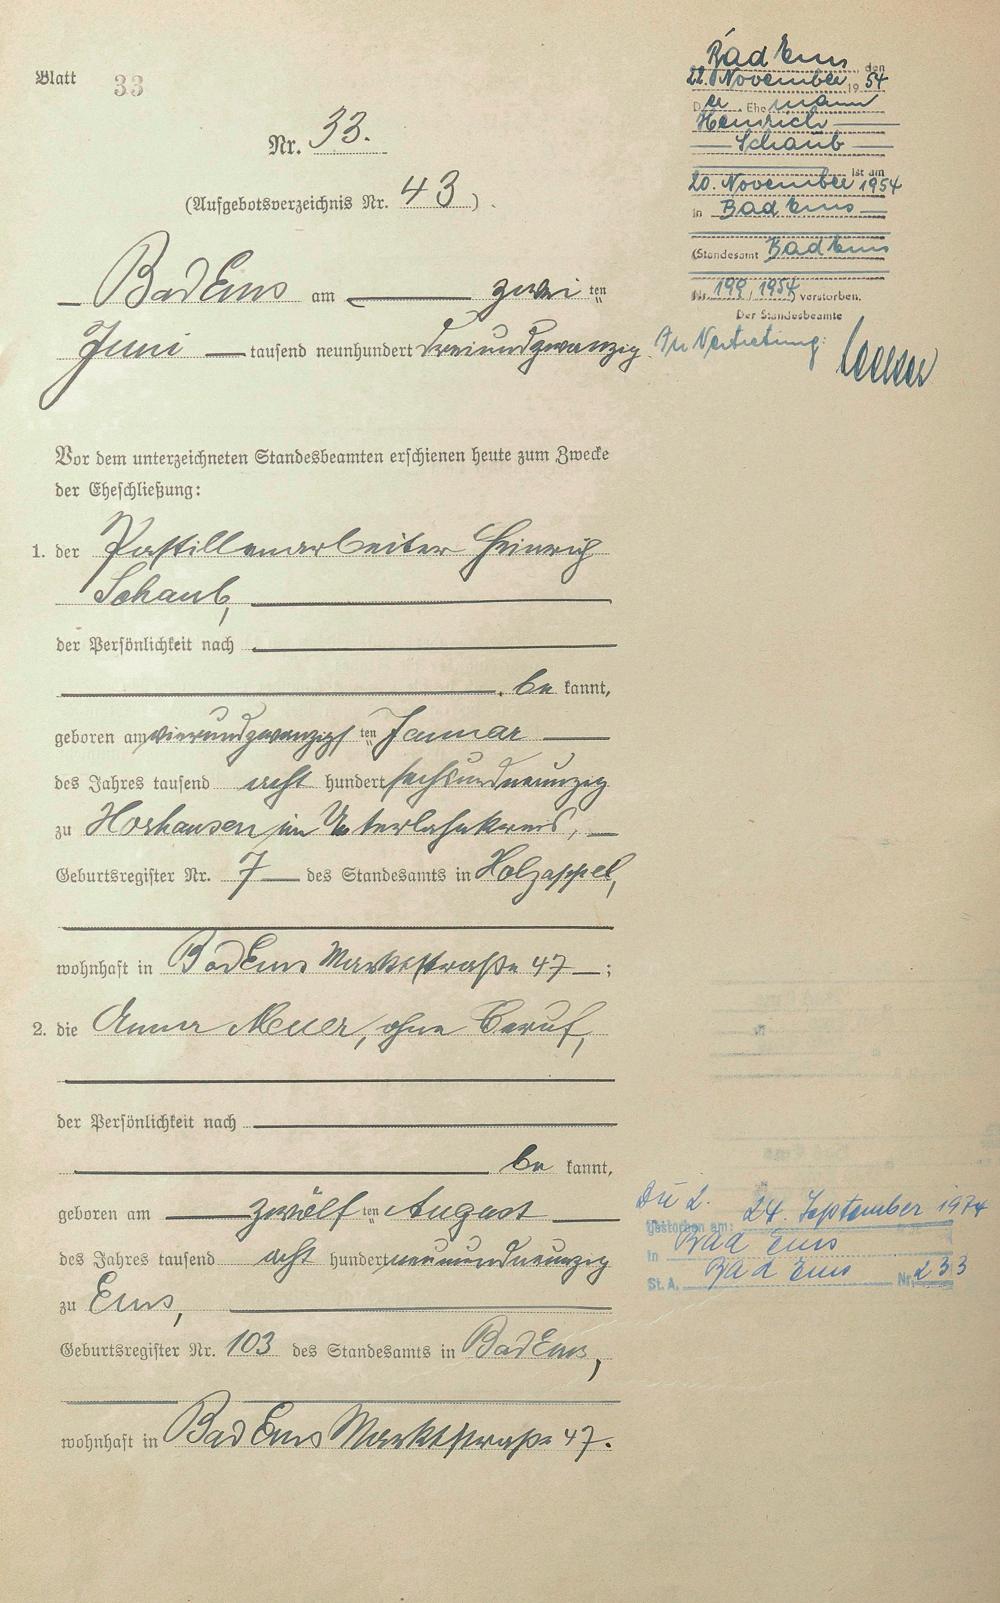 Blatt 33
Nr. 33.
(Aufgebotsverzeichnis Nr. 43).
Bad Ems am zweiten
Juni tausend neunhundert dreiundzwanzig.
Vor dem unterzeichneten Standesbeamten erschienen heute zum Zwecke
der Eheschließung:
1. der Pastillenarbeiter Heinrich
Schaub,
der Persönlichkeit nach
be kannt,
geboren am vierundzwanzigsten Januar
des Jahres tausend acht hundert sechsundneunzig
zu Horhausen im Unterlahnkreis,
Geburtsregister Nr. 7 des Standesamts in Holzappel,
wohnhaft in Bad Ems Marktstraße 47;
2. die Anna Meuer, ohne Beruf,
der Persönlichkeit nach
be kannt,
geboren am zwölften August
des Jahres tausend acht hundert neunundneunzig
zu Ems,
Geburtsregister Nr. 103 des Standesamts in Bad Ems,
wohnhaft in Bad Ems Marktstraße 47.
Bad Ems, den
22. November 1954
Der Ehemann
Heinrich
Schaub
ist am
20. November 1954
in Bad Ems
(Standesamt Bad Ems
Nr. 199/1954 verstorben.
Der Standesbeamte
In Vertretung:
Zu 2.
gestorben am: 24. September 1974
in Bad Ems
St.A. Bad Ems Nr. 233